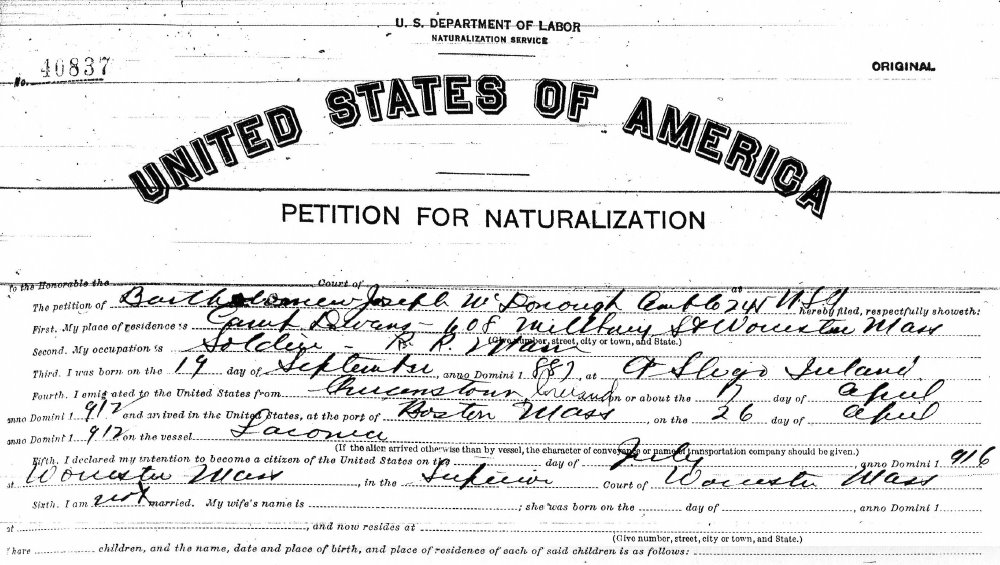 U. S. DEPARTMENT OF LABOR
NATURALIZATION SERVICE
No. 40837
ORIGINAL
UNITED STATES OF AMERICA
PETITION FOR NATURALIZATION
To the Honorable the Court of at
The petition of Bartholomew Joseph McDonough Amb Co 24 USA hereby filed, respectfully showeth:
First. My place of residence is Camp Devens - 608 Millbury St Worcester Mass
(Give number, street, city or town, and State.)
Second. My occupation is Soldier - R. R. Man
Third. I was born on the 19 day of September, anno Domini 1 887, at Sligo Ireland
Fourth. I emigrated to the United States from Queenstown Ireland on or about the 17 day of April
anno Domini 1 912 and arrived in the United States, at the port of Boston Mass, on the 26 day of April
anno Domini 1 912 on the vessel Laconia
(If the alien arrived otherwise than by vessel, the character of conveyance or name of transportation company should be given.)
Fifth. I declared my intention to become a citizen of the United States on the day of July, anno Domini 1 916
at Worcester Mass, in the Superior Court of Worcester Mass
Sixth. I am not married. My wife's name is ; she was born on the day of , anno Domini 1
at , and now resides at
(Give number, street, city or town, and State.)
I have children, and the name, date and place of birth, and place of residence of each of said children is as follows: